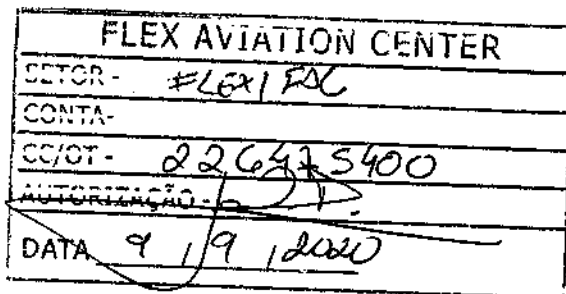 FLEX AVIATION CENTER
SETOR - FLEX / FAC
CONTA-
CC/OT - 226475400
AUTORIZAÇÃO -
DATA 9 / 9 / 2020